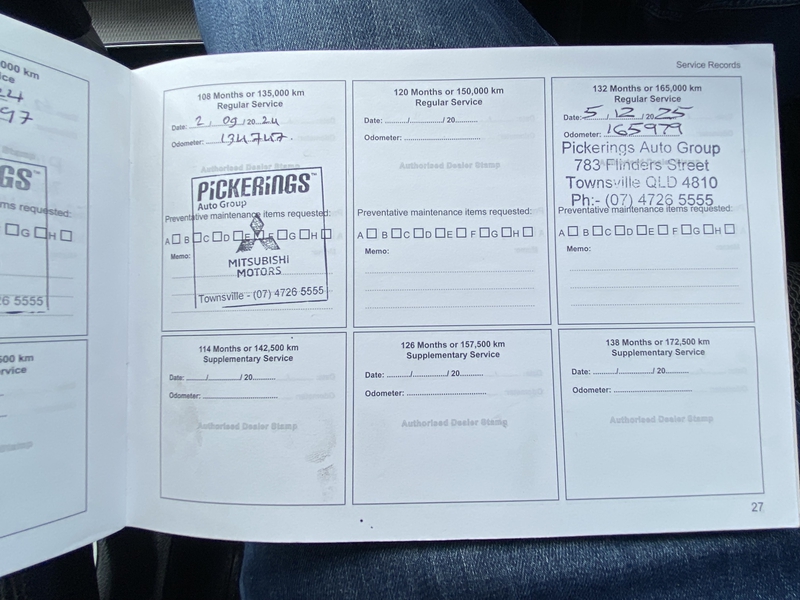 000 km
ice
24
97
GS™
ms requested:
G H
26 5555
500 km
rvice
Service Records
108 Months or 135,000 km
Regular Service
Date: 2 / 09 / 20 24
Odometer: 134747
Authorised Dealer Stamp
PiCKERiNGS™
Auto Group
Preventative maintenance items requested:
A B C D E F G H
Memo:
MITSUBISHI
MOTORS
Townsville - (07) 4726 5555
120 Months or 150,000 km
Regular Service
Date: ........../................/ 20..........
Odometer: ..................................
Authorised Dealer Stamp
Preventative maintenance items requested:
A B C D E F G H
Memo:
132 Months or 165,000 km
Regular Service
Date: 5 / 12 / 20 25
Odometer: 165979
Pickerings Auto Group
783 Flinders Street
Townsville QLD 4810
Ph:- (07) 4726 5555
Preventative maintenance items requested:
A B C D E F G H
Memo:
114 Months or 142,500 km
Supplementary Service
Date: ........../................/ 20..........
Odometer: ..................................
Authorised Dealer Stamp
126 Months or 157,500 km
Supplementary Service
Date: ........../................/ 20..........
Odometer: ..................................
Authorised Dealer Stamp
138 Months or 172,500 km
Supplementary Service
Date: ........../................/ 20..........
Odometer: ..................................
Authorised Dealer Stamp
27